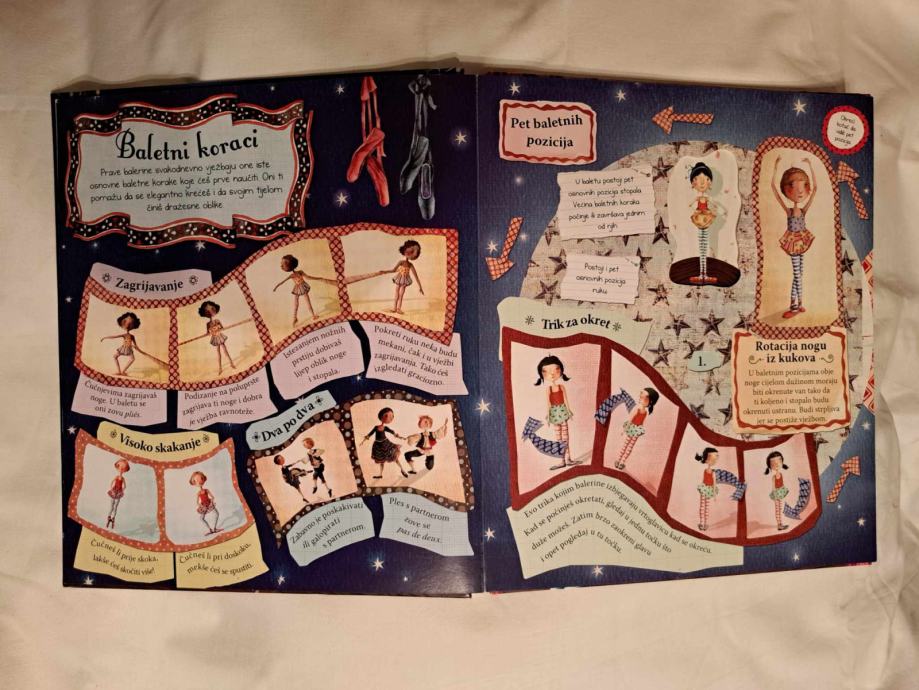 Baletni koraci
Prave balerine svakodnevno vježbaju one iste
osnovne baletne korake koje ćeš prve naučiti. Oni ti
pomažu da se elegantno krećeš i da svojim tijelom
činiš dražesne oblike.
Zagrijavanje
Čučnjevima zagrijavaš
noge. U baletu se
oni zovu pliés.
Podizanje na poluprste
zagrijava ti noge i dobra
je vježba ravnoteže.
Istezanjem nožnih
prstiju dobivaš
lijep oblik noge
i stopala.
Pokreti ruku neka budu
mekani, čak i u vježbi
zagrijavanja. Tako ćeš
izgledati graciozno.
Visoko skakanje
Čučneš li prije skoka,
lakše ćeš skočiti više!
Čučneš li pri doskoku,
mekše ćeš se spustiti.
Dva po dva
Zabavno je poskakivati
ili galopirati
s partnerom.
Ples s partnerom
zove se
pas de deux.
Pet baletnih
pozicija
Okreći
kotač da
vidiš pet
pozicija.
U baletu postoji pet
osnovnih pozicija stopala.
Većina baletnih koraka
počinje ili završava jednim
od njih.
Postoji i pet
osnovnih pozicija
ruku.
1.
Rotacija nogu
iz kukova
U baletnim pozicijama obje
noge cijelom dužinom moraju
biti okrenute van tako da
ti koljeno i stopalo budu
okrenuti ustranu. Budi strpljiva
jer se postiže vježbom
Trik za okret
Evo trika kojim balerine izbjegavaju vrtoglavicu kad se okreću.
Kad se počinješ okretati, gledaj u jednu točku što
duže možeš. Zatim brzo zaokreni glavu
i opet pogledaj u tu točku.